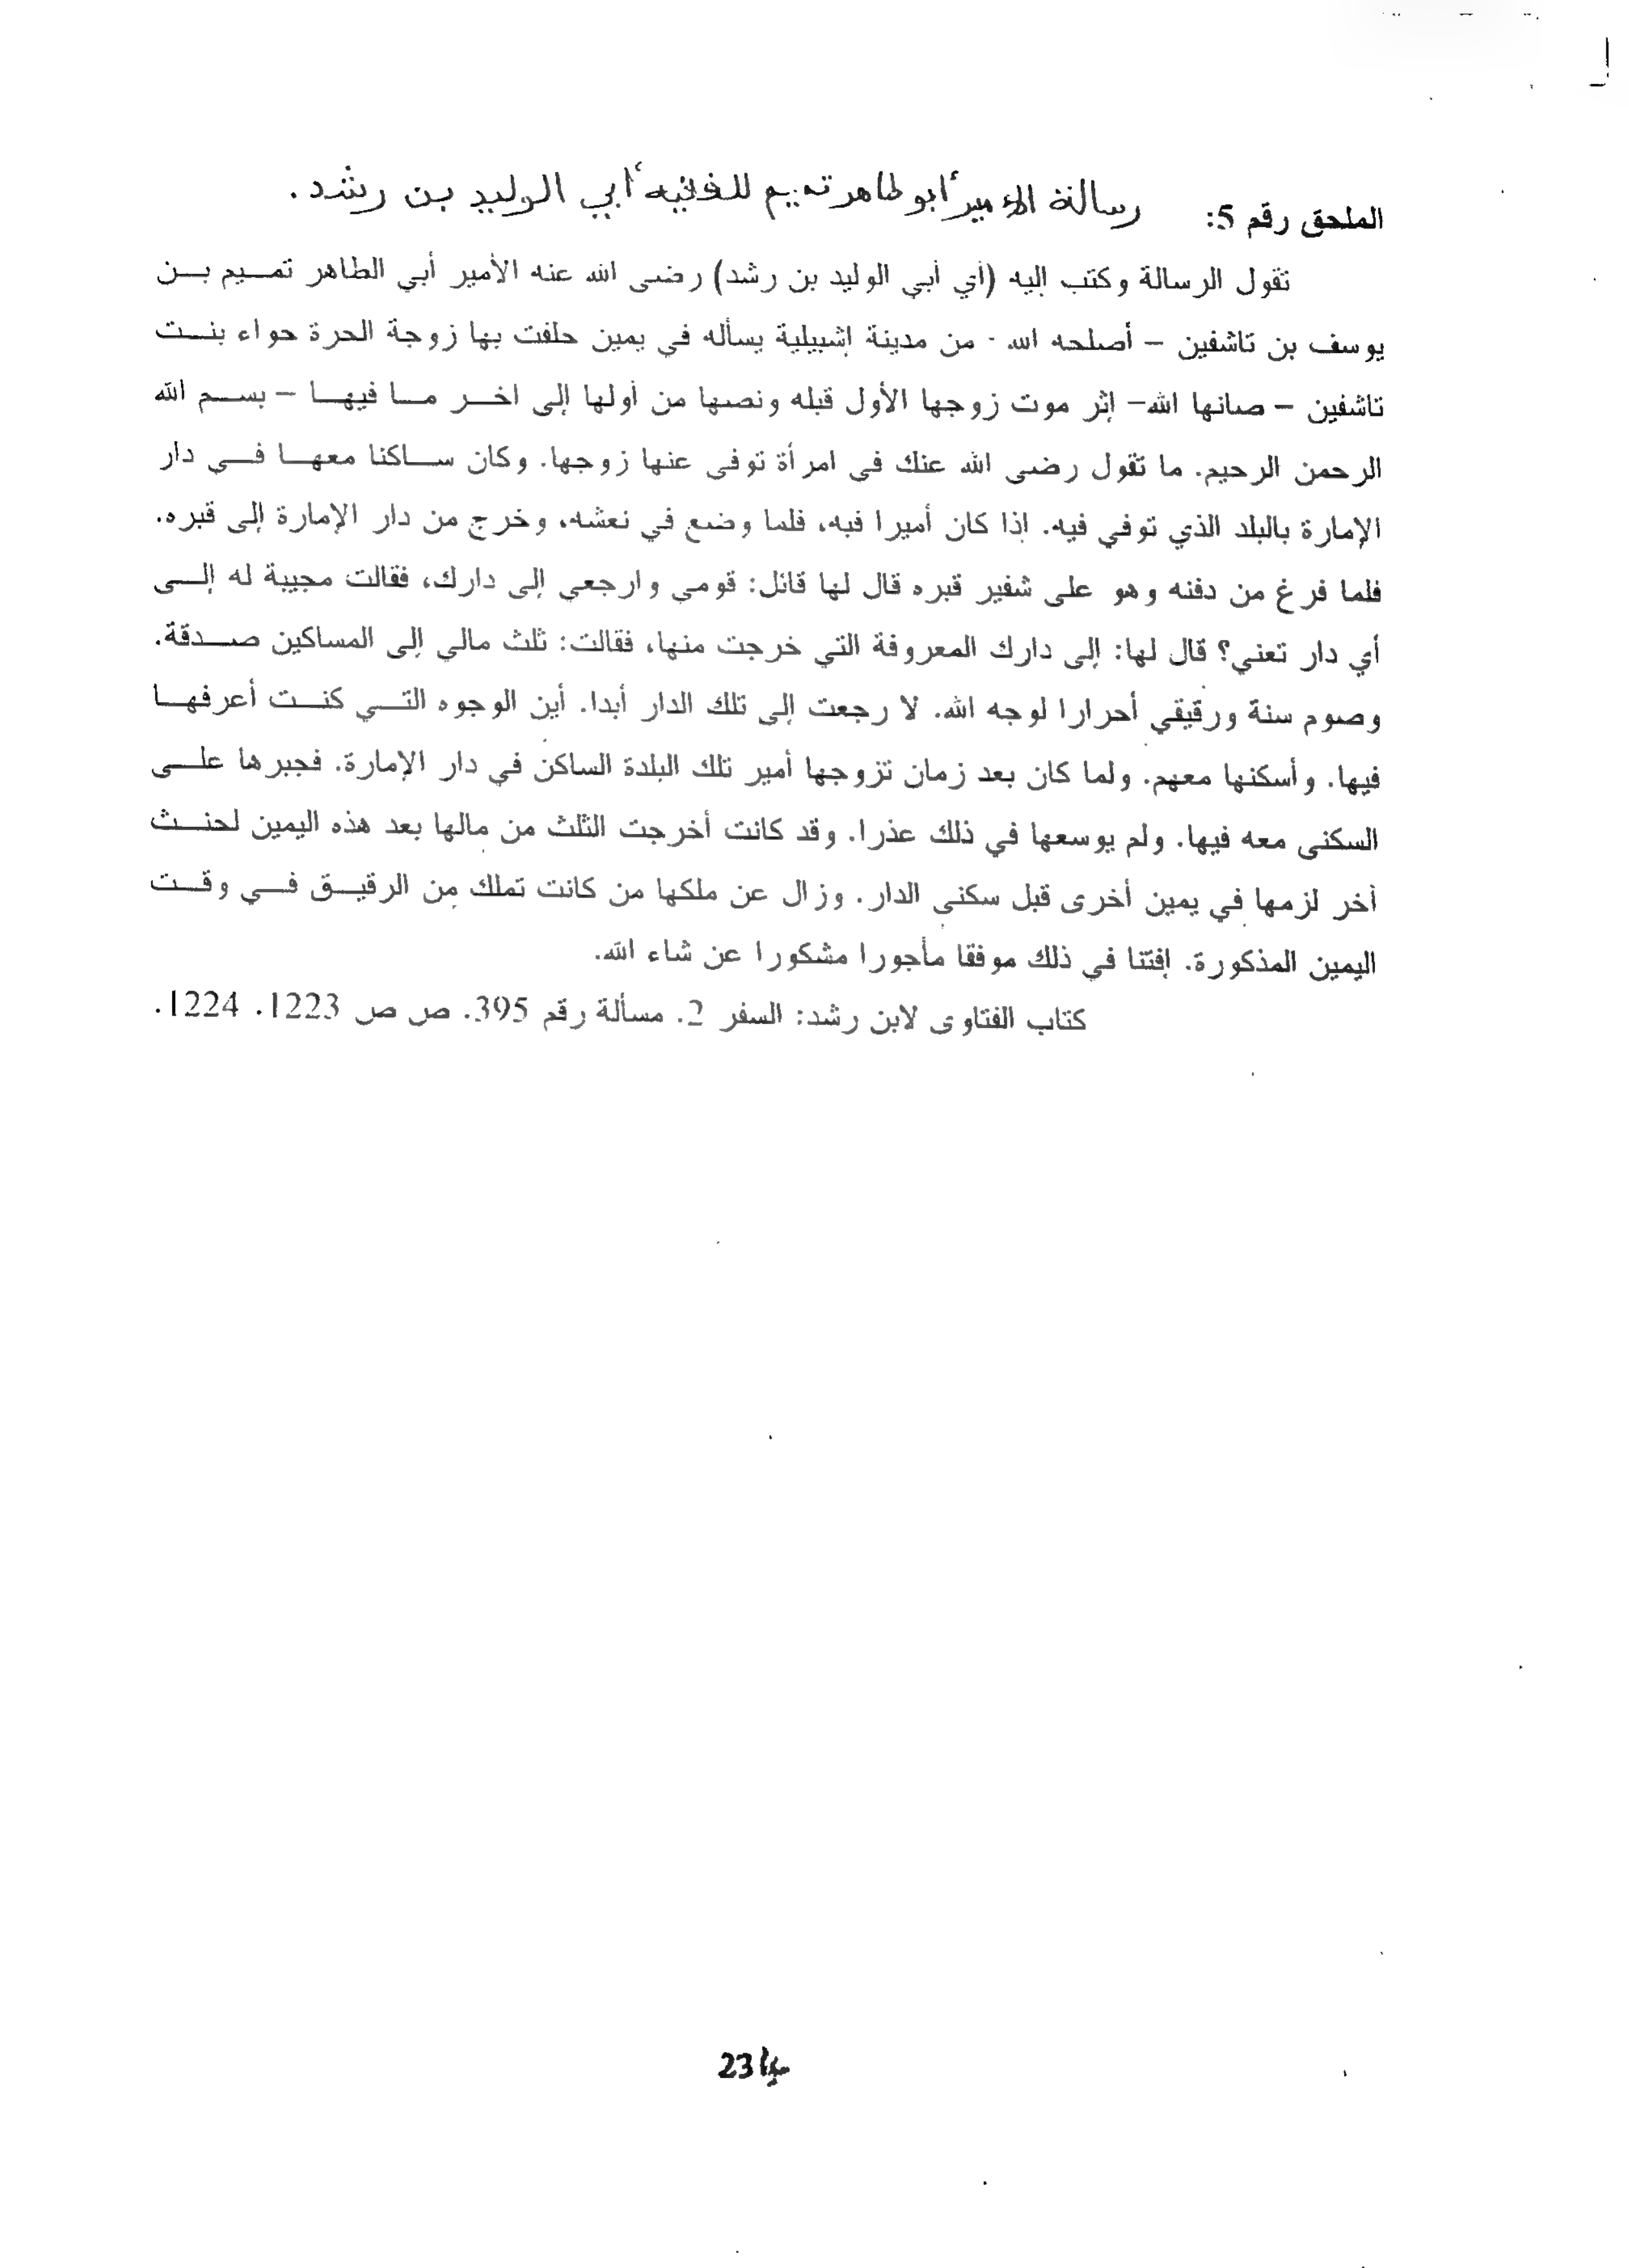 الملحق رقم 5: رسالة الأمير أبو طاهر تميم للفقيه أبي الوليد بن رشد.
تقول الرسالة وكتب إليه (أي أبي الوليد بن رشد) رضى الله عنه الأمير أبي الطاهر تميم بن
يوسف بن تاشفين – أصلحه الله - من مدينة إشبيلية يسأله في يمين حلفت بها زوجة الحرة حواء بنت
تاشفين – صانها الله– إثر موت زوجها الأول قبله ونصها من أولها إلى اخر ما فيها – بسم الله
الرحمن الرحيم. ما تقول رضى الله عنك في امرأة توفى عنها زوجها. وكان ساكنا معها في دار
الإمارة بالبلد الذي توفي فيه. إذا كان أميرا فيه، فلما وضع في نعشه، وخرج من دار الإمارة إلى قبره.
فلما فرغ من دفنه وهو على شفير قبره قال لها قائل: قومي وارجعي إلى دارك، فقالت مجيبة له إلى
أي دار تعني؟ قال لها: إلى دارك المعروفة التي خرجت منها، فقالت: ثلث مالي إلى المساكين صدقة.
وصوم سنة ورقيقي أحرارا لوجه الله. لا رجعت إلى تلك الدار أبدا. أين الوجوه التي كنت أعرفها
فيها. وأسكنها معهم. ولما كان بعد زمان تزوجها أمير تلك البلدة الساكن في دار الإمارة. فجبرها على
السكنى معه فيها. ولم يوسعها في ذلك عذرا. وقد كانت أخرجت الثلث من مالها بعد هذه اليمين لحنث
أخر لزمها في يمين أخرى قبل سكنى الدار. وزال عن ملكها من كانت تملك من الرقيق في وقت
اليمين المذكورة. إفتنا في ذلك موفقا مأجورا مشكورا عن شاء الله.
كتاب الفتاوى لابن رشد: السفر 2. مسألة رقم 395. ص ص 1223. 1224.